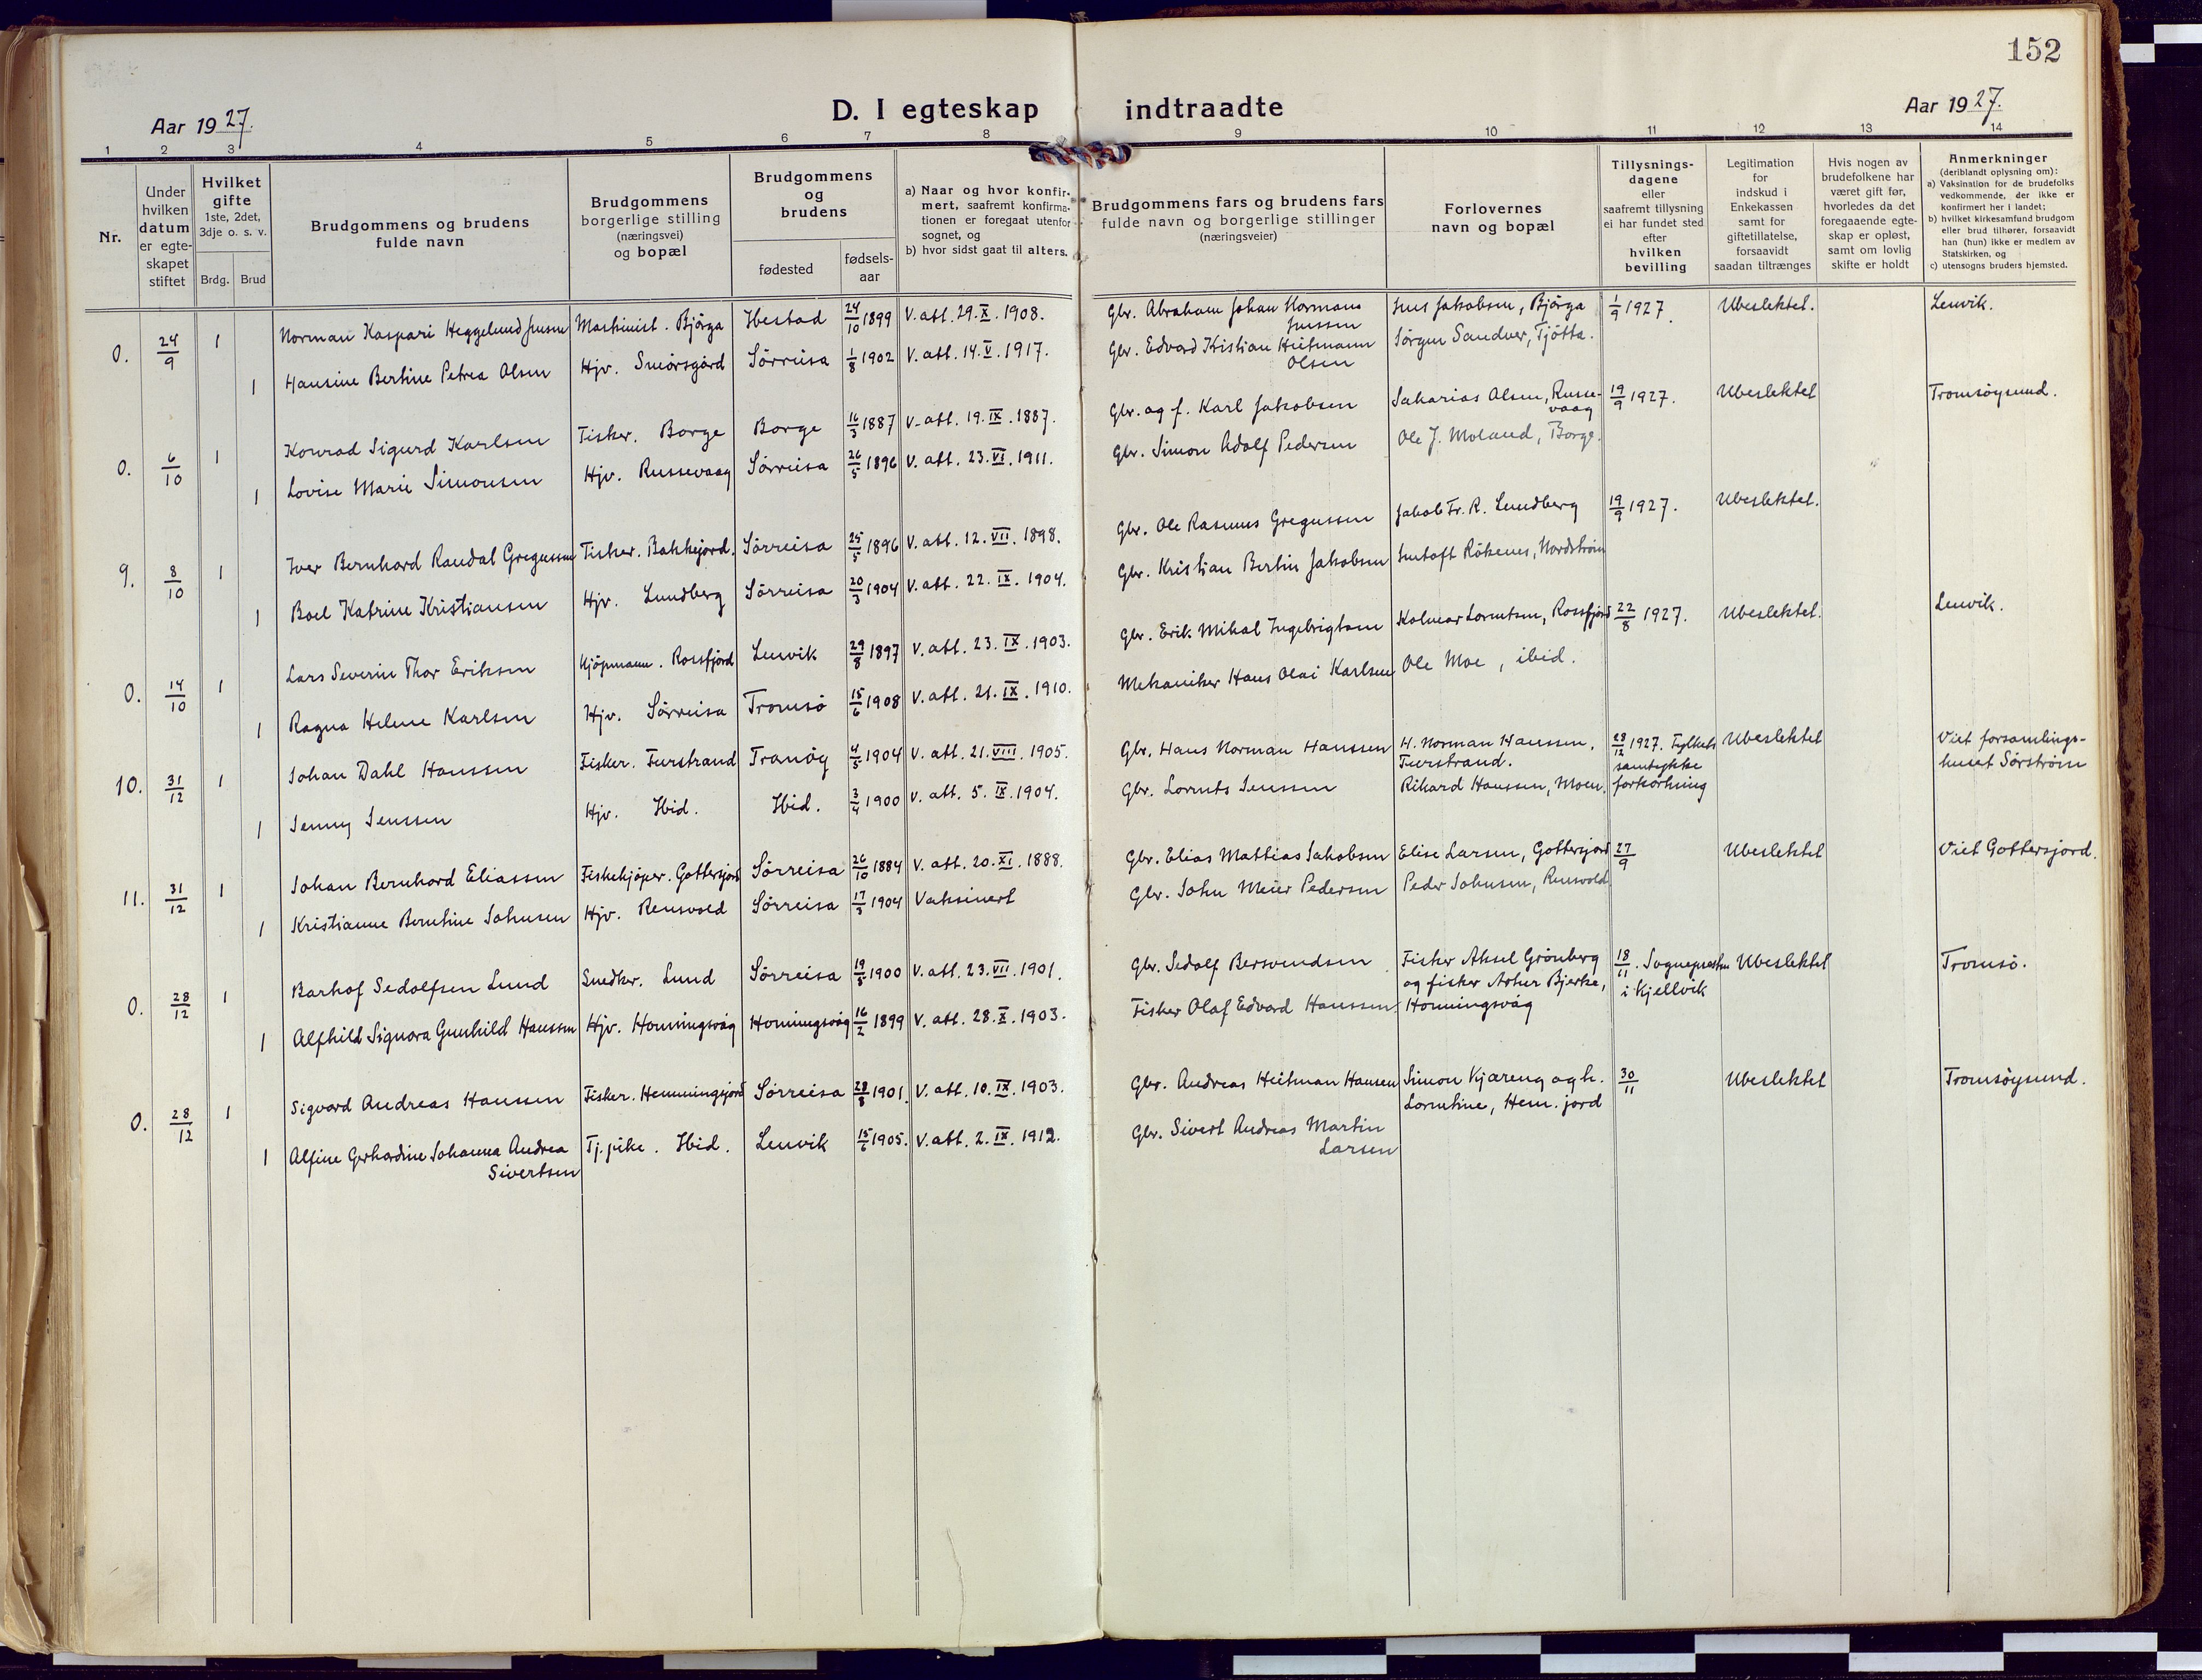 152
Aar 1927.
D. I egteskap indtraadte
Aar 1927.
1 2 3 4 5 6 7 8 9 10 11 12 13 14
Nr.
Under hvilken datum er egteskapet stiftet
Hvilket gifte 1ste, 2det, 3dje o. s. v.
Brdg. Brud
Brudgommens og brudens fulde navn
Brudgommens borgerlige stilling (næringsvei) og bopæl
Brudgommens og brudens
fødested
fødsels-aar
a) Naar og hvor konfirmert, saafremt konfirmationen er foregaat utenfor sognet, og
b) hvor sidst gaat til alters.
Brudgommens fars og brudens fars fulde navn og borgerlige stillinger (næringsveier)
Forlovernes navn og bopæl
Tillysningsdagene eller saafremt tillysning ei har fundet sted efter hvilken bevilling
Legitimation for indskud i Enkekassen samt for giftetillatelse, forsaavidt saadan tiltrænges
Hvis nogen av brudefolkene har været gift før, hvorledes da det foregaaende egteskap er opløst, samt om lovlig skifte er holdt
Anmerkninger (deriblandt oplysning om):
a) Vaksination for de brudefolks vedkommende, der ikke er konfirmert her i landet;
b) hvilket kirkesamfund brudgom eller brud tilhører, forsaavidt han (hun) ikke er medlem av Statskirken, og
c) utensogns bruders hjemsted.
0. 24/9 1 Norman Kaspari Heggelund Jensen Maskinist. Bjórga Ibestad 24/10 1899 V. att. 29. X. 1908. Gbr. Abraham Johan Normann Jenssen Jens Jakobsen, Bjórga 1/9 1927. Ubeslektet. Lenvik.
1 Hansine Bertine Petrea Olsen Hjv. Smörsgård Sórreisa 1/8 1902 V. att. 14. V. 1917. Gbr. Edvard Kristian Heitmann Olsen Jörgen Sandver, Tjótta.
0. 6/10 1 Konrad Sigurd Karlsen Fisker. Borge Borge 16/3 1887 V. att. 19. IX. 1887. Gbr. og f. Karl Jakobsen Sakarias Olsen, Russevaag 19/9 1927. Ubeslektet Tromsöysund.
1 Lovise Marie Simonsen Hjv. Russevaag Sórreisa 26/5 1896 V. att. 23. VI. 1911. Gbr. Simon Adolf Pedersen Ole J. Moland, Borge.
9. 8/10 1 Iver Bernhard Randal Gregussen Fisker. Bakkejord. Sórreisa 25/5 1896 V. att. 12. VII. 1898. Gbr. Ole Rasmus Gregussen Jakob Fr. R. Lundberg 19/9 1927. Ubeslektet.
1 Boel Katrine Kristiansen Hjv. Lundberg Sórreisa 20/3 1904 V. att. 22. IX. 1904. Gbr. Kristian Bertin Jakobsen Jentoft Rókenes, Nordstróm
0. 14/10 1 Lars Severin Thor Eriksen Kjöpmann. Rossfjord Lenvik 29/8 1897 V. att. 23. IX. 1903. Gbr. Erik Mikal Ingebrigtsen Kolmar Lorentsen, Rossfjord 22/8 1927. Ubeslektet. Lenvik.
1 Ragna Helene Karlsen Hjv. Sórreisa Tromsö 15/6 1908 V. att. 21. IX. 1910. Mekaniker Hans Olai Karlsen Ole Moe, ibid.
10. 31/12 1 Johan Dahl Hanssen Fisker. Furstrand Tranöy 4/5 1904 V. att. 21. VIII. 1905. Gbr. Hans Norman Hanssen H. Norman Hanssen, Furstrand. 28/12 1927. Fylkets samtykke forkortning Ubeslektet Viet forsamlingshuset Sórstróm
1 Jenny Jenssen Hjv. Ibid. Ibid. 3/4 1900 V. att. 5. IX. 1904. Gbr. Lornts Jenssen Rikard Hanssen, Moen.
11. 31/12 1 Johan Bernhard Eliassen Fiskekjöper. Gottersjord Sórreisa 26/10 1884 V. att. 20. XI. 1888. Gbr. Elias Mattias Jakobsen Elise Larsen, Gottersjord 27/9 Ubeslektet Viet Gottersjord.
1 Kristianne Berntine Johnsen Hjv. Rensvold Sórreisa 17/3 1904 Vaksinert Gbr. John Meier Pedersen Peder Johnsen, Rensvold
0. 28/12 1 Barhof Sedolfsen Lund Snedker. Lund Sórreisa 19/5 1900 V. att. 23. VII. 1901. Gbr. Sedolf Bersvendsen Fisker Aksel Grónberg og fisker Artur Bjerke, Honningsvåg 18/11. Sognepresten i Kjellvik Ubeslektet Tromsö.
1 Alfhild Signora Gunhild Hanssen Hjv. Honningsvåg Honningsvåg 16/2 1899 V. att. 28. X. 1903. Fisker Olaf Edvard Hanssen
0. 28/12 1 Sigvard Andreas Hanssen Fisker. Hemmingsjord Sórreisa 28/8 1901. V. att. 10. IX. 1903. Gbr. Andreas Heitman Hansen Simon Kjæreng og h. Lorntine, Hem. jord 30/11 Ubeslektet Tromsöysund.
1 Alfine Gerhardine Johanna Andrea Sivertsen Tj. pike. Ibid. Lenvik 15/6 1905. V. att. 2. IX. 1912. Gbr. Sivert Andreas Martin Larsen